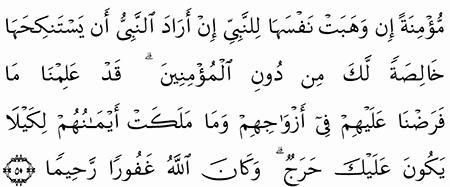 مُّؤْمِنَةً إِن وَهَبَتْ نَفْسَهَا لِلنَّبِىِّ إِنْ أَرَادَ ٱلنَّبِىُّ أَن يَسْتَنكِحَهَا
خَالِصَةً لَّكَ مِن دُونِ ٱلْمُؤْمِنِينَ ۗ قَدْ عَلِمْنَا مَا
فَرَضْنَا عَلَيْهِمْ فِىٓ أَزْوَٰجِهِمْ وَمَا مَلَكَتْ أَيْمَـٰنُهُمْ لِكَيْلَا
يَكُونَ عَلَيْكَ حَرَجٌ ۗ وَكَانَ ٱللَّهُ غَفُورًا رَّحِيمًا ﴿٥٠﴾